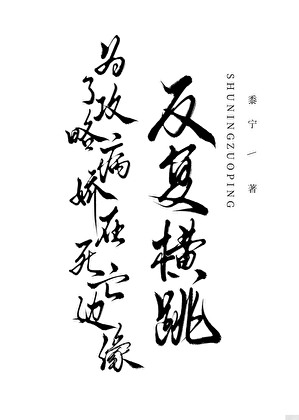 为了攻略病娇在死亡边缘
反复横跳
SHUNINGZUOPING
黍宁/著